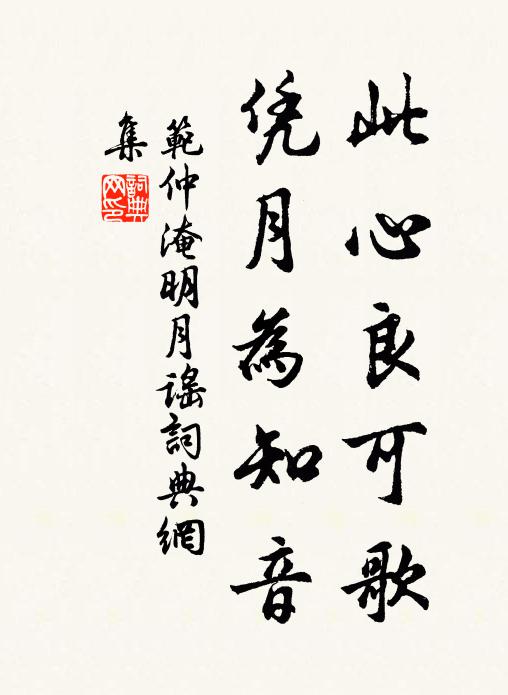 此心良可歌
凭月為知音
範仲淹明月謠詞典網
集
詞典網印